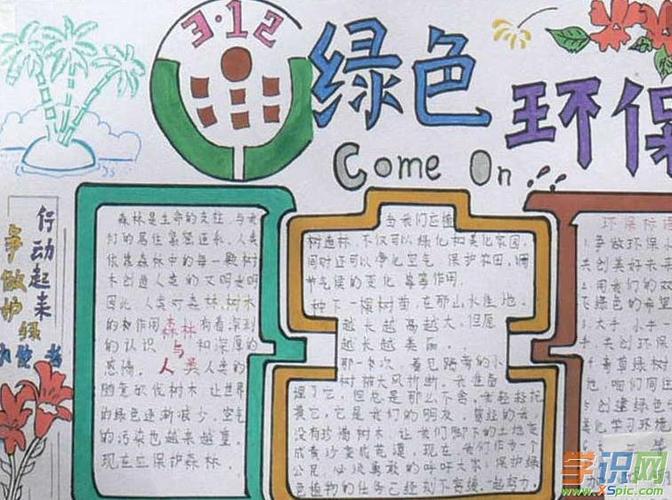 3·12
绿色
环保
Come On
行动起来
争做护绿
小使者
森林是生命的支柱,与我
们的居住紧密连系,人类
依靠森林中的每一颗树
木创造人类的文明
因此,人类对森林,树木
的和作用森林有着深刻
的认识 与 和深厚的
感情。人类人类的
随意砍伐树木,让世界
的绿色逐渐减少,空气
的污染也越来越重。
现在应保护森林。
当我们忘植
树造林,不仅可以绿化和美化家园,
同时还可以净化空气、保护农田,调
节气候的变化、等作用。
种下一棵树苗,在那山水生地。
越长越高越大,但愿
越长越美丽。
那一木次,着见路旁的小
树被大风折断,我准备
理了它,但总是那么不舍,我轻轻抚
摸它,它是我们的朋友,曾经的我,
没有珍惜树木,让我们脚下的土地变
成黄沙变成荒漠,现在我们作为一个
公民,必须勇敢的呼吁大家:保护绿
色植物的任务已经刻不容缓,一起努力
环保标语
1.争做环保
共创美好未来
2.用我们的双
飞绿色的
3.大手,小手
共创环保
4.
地,咱们同
5.创建绿色
美化学习环境
学识网
www.xSpic.com